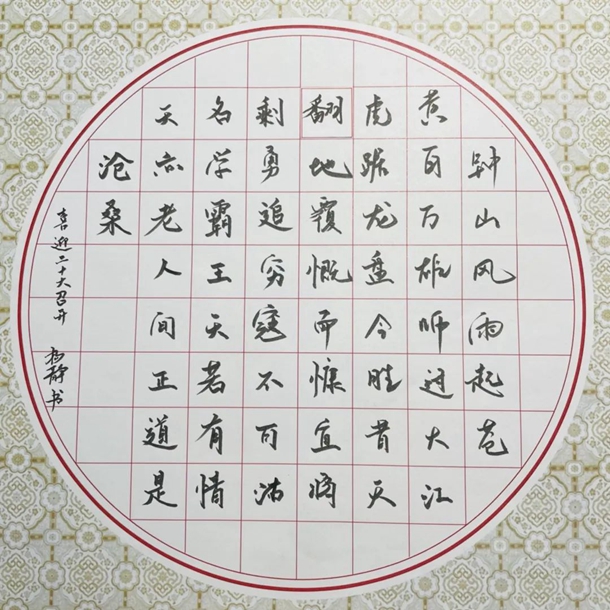 钟山风雨起苍
黄百万雄师过大江
虎踞龙盘今胜昔天
翻地覆慨而慷宜将
剩勇追穷寇不可沽
名学霸王天若有情
天亦老人间正道是
沧桑
喜迎二十大召开 杨静书